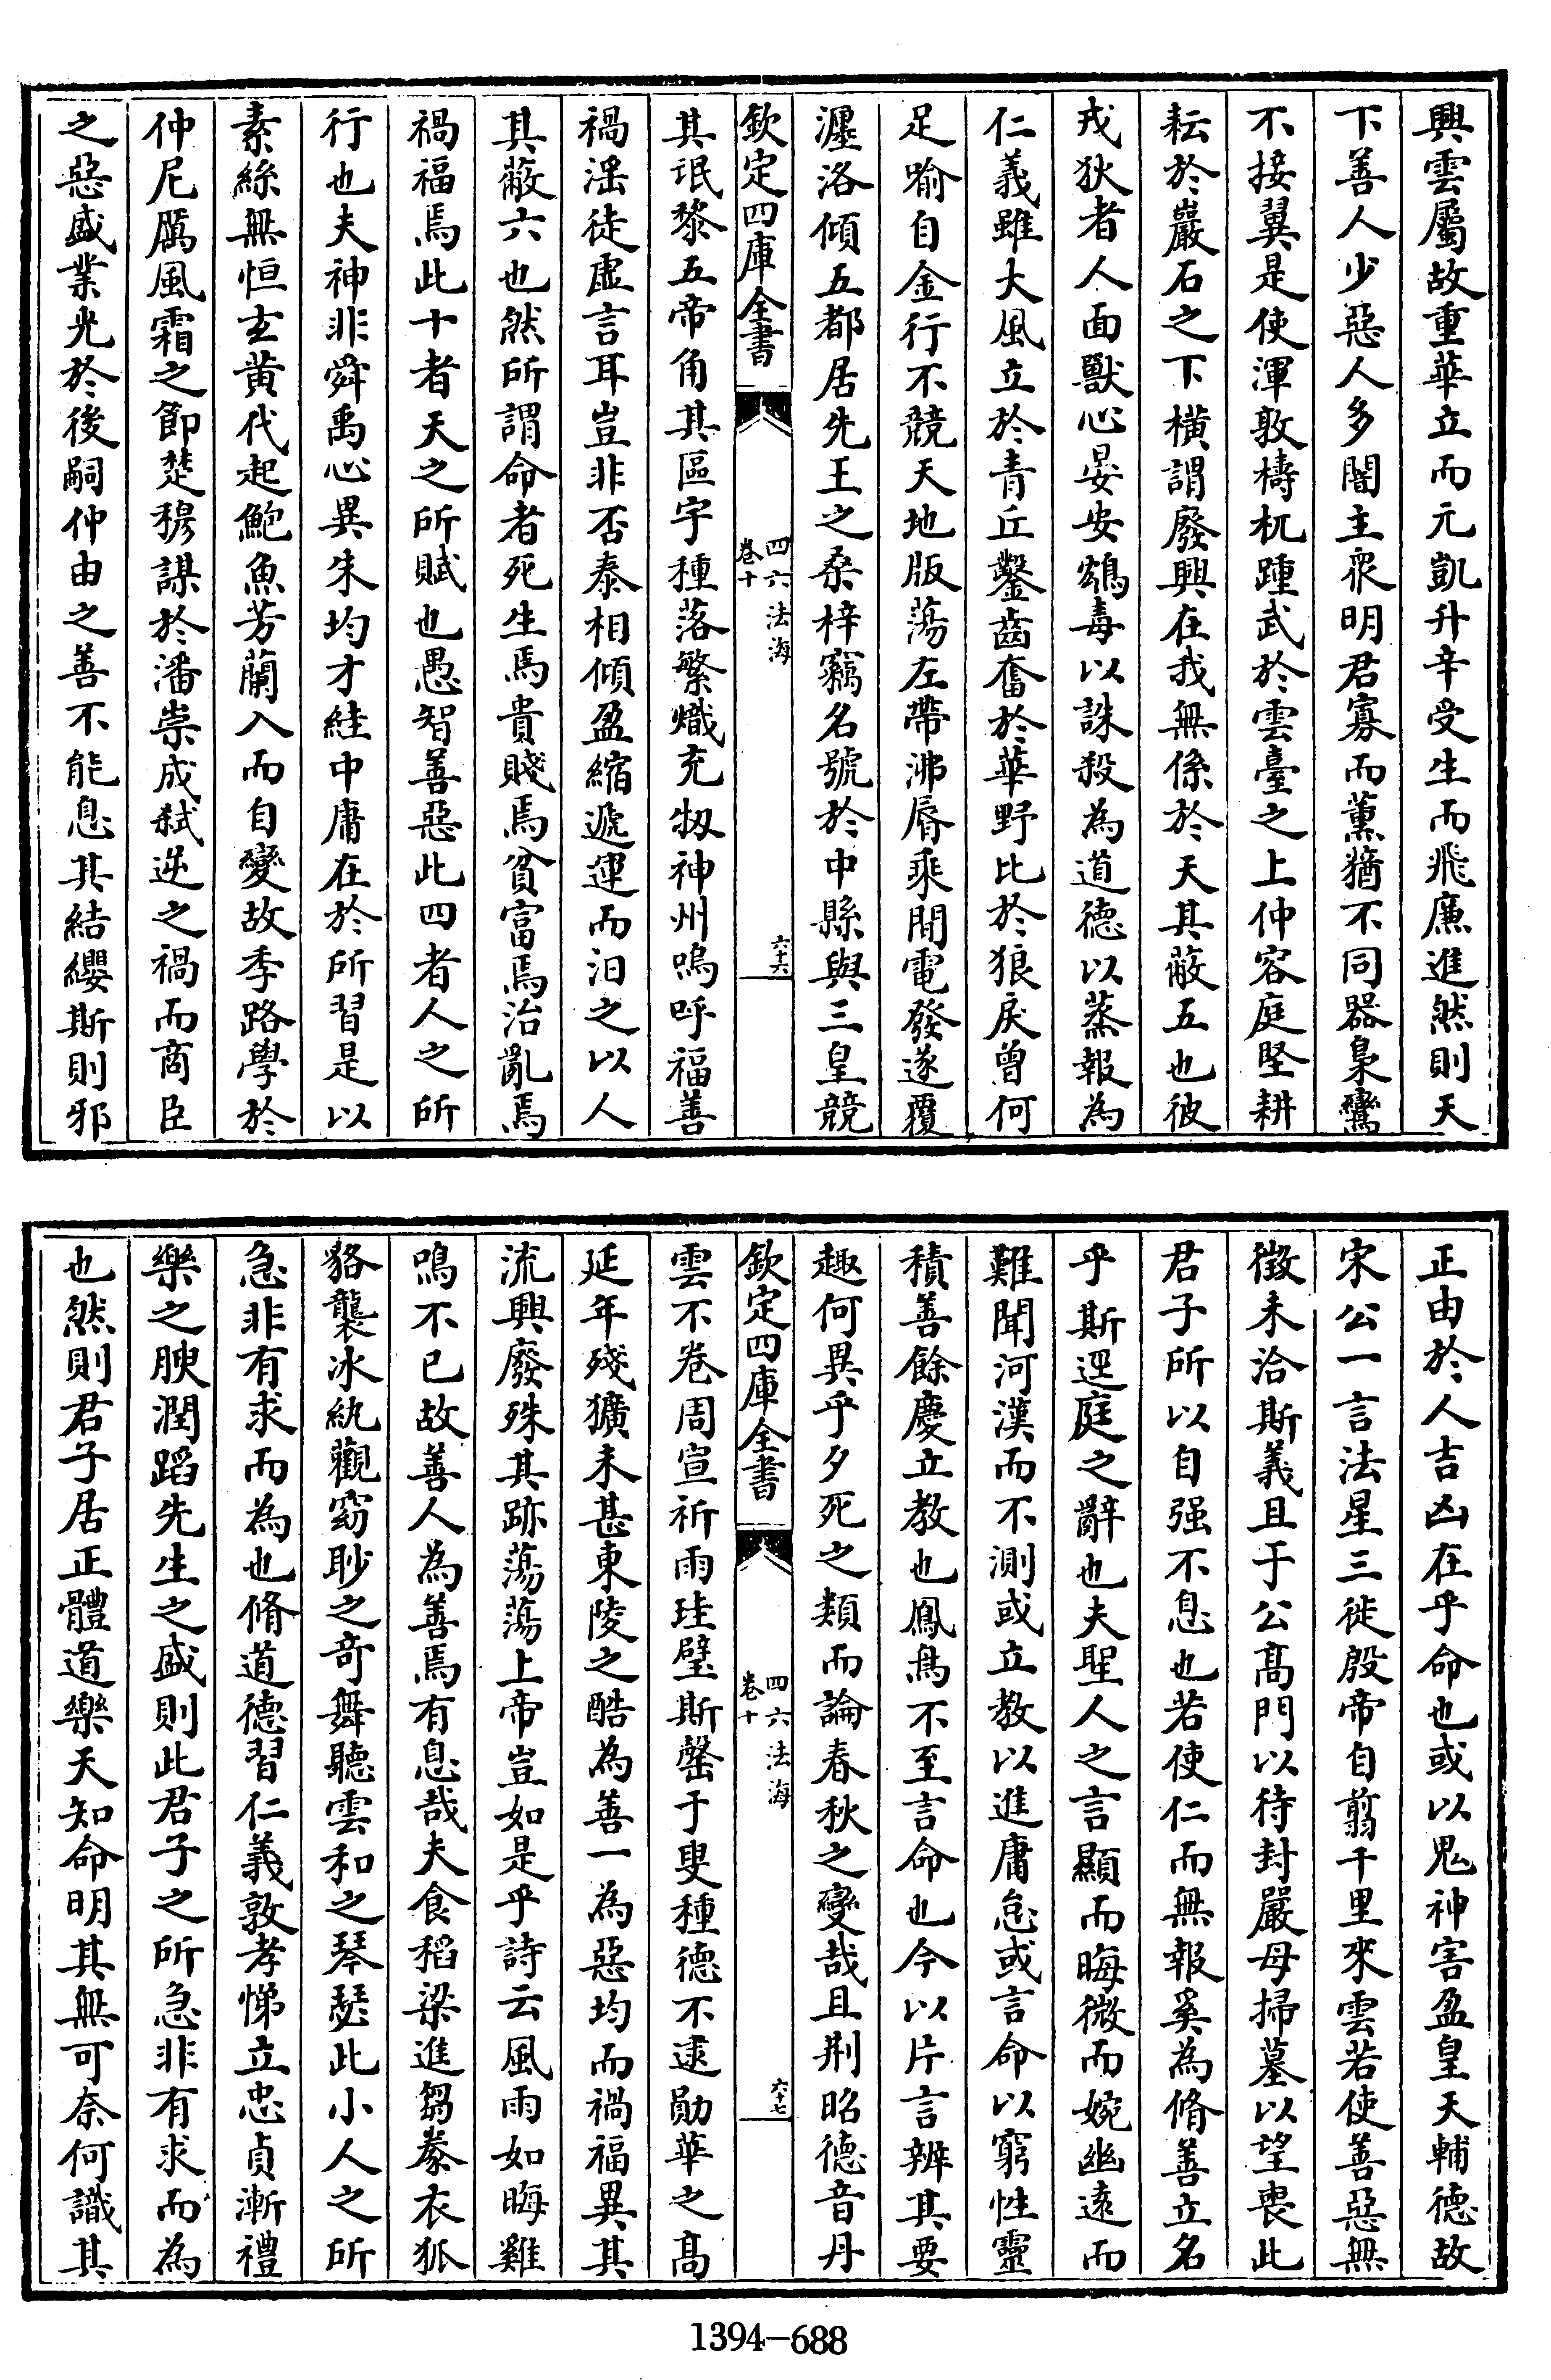 興雲屬故重華立而元凱升辛受生而飛廉進然則天
下善人少惡人多闇主衆明君寡而薫蕕不同器梟鸞
不接翼是使渾敦檮杌踵武於雲臺之上仲容庭堅耕
耘於巖石之下横謂廢興在我無係於天其蔽五也彼
戎狄者人面獸心宴安鴆毒以誅殺為道德以蒸報為
仁義雖大風立於青丘鑿齒奮於華野比於狼戾曾何
足喻自金行不競天地版蕩左帶沸脣乘間電發遂覆
瀍洛傾五都居先王之桑梓竊名號於中縣與三皇競
欽定四庫全書
四六法海
卷十
六十六
其氓黎五帝角其區宇種落繁熾充牣神州嗚呼福善
禍淫徒虚言耳豈非否泰相傾盈縮遞運而汩之以人
其蔽六也然所謂命者死生焉貴賤焉貧富焉治亂焉
禍福焉此十者天之所賦也愚智善惡此四者人之所
行也夫神非舜禹心異朱均才絓中庸在於所習是以
素絲無恒玄黄代起鮑魚芳蘭入而自變故季路學於
仲尼厲風霜之節楚穆謀於潘崇成弑逆之禍而商臣
之惡盛業光於後嗣仲由之善不能息其結纓斯則邪
正由於人吉凶在乎命也或以鬼神害盈皇天輔德故
宋公一言法星三徙殷帝自翦千里來雲若使善惡無
徵未洽斯義且于公髙門以待封嚴母掃墓以望喪此
君子所以自强不息也若使仁而無報奚為脩善立名
乎斯逕庭之辭也夫聖人之言顯而晦微而婉幽逺而
難聞河漢而不測或立教以進庸怠或言命以窮性靈
積善餘慶立教也鳳鳥不至言命也今以片言辨其要
趣何異乎夕死之類而論春秋之變哉且荆昭德音丹
欽定四庫全書
四六法海
卷十
六十七
雲不卷周宣祈雨珪璧斯罄于叟種德不逮勛華之髙
延年殘獷未甚東陵之酷為善一為惡均而禍福異其
流興廢殊其跡蕩蕩上帝豈如是乎詩云風雨如晦雞
鳴不已故善人為善焉有息哉夫食稻粱進芻豢衣狐
貉襲冰紈觀窈眇之竒舞聽雲和之琴瑟此小人之所
急非有求而為也脩道德習仁義敦孝悌立忠貞漸禮
樂之腴潤蹈先生之盛則此君子之所急非有求而為
也然則君子居正體道樂天知命明其無可奈何識其
1394-688